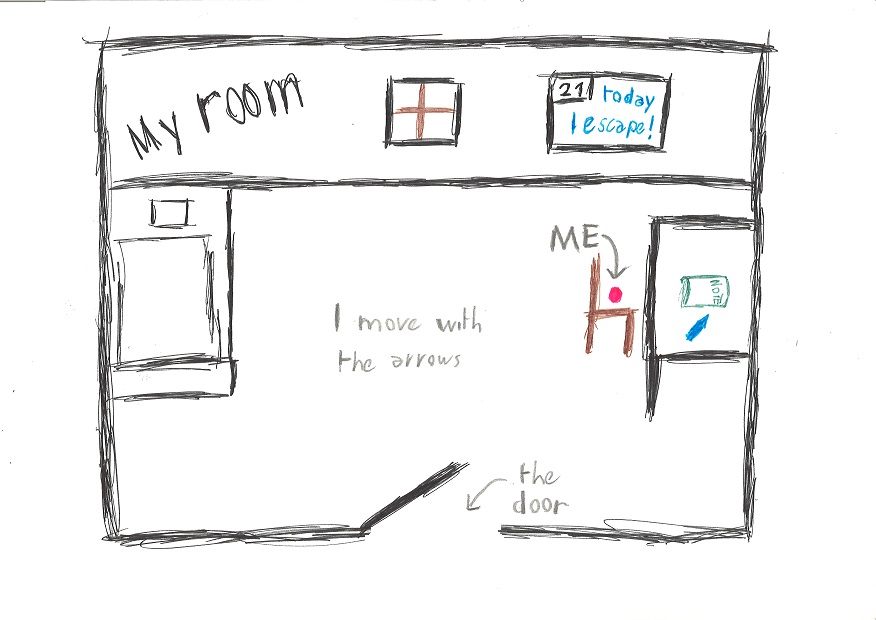 My room
21 today
I escape!
ME
NOTE
I move with
the arrows
the
door